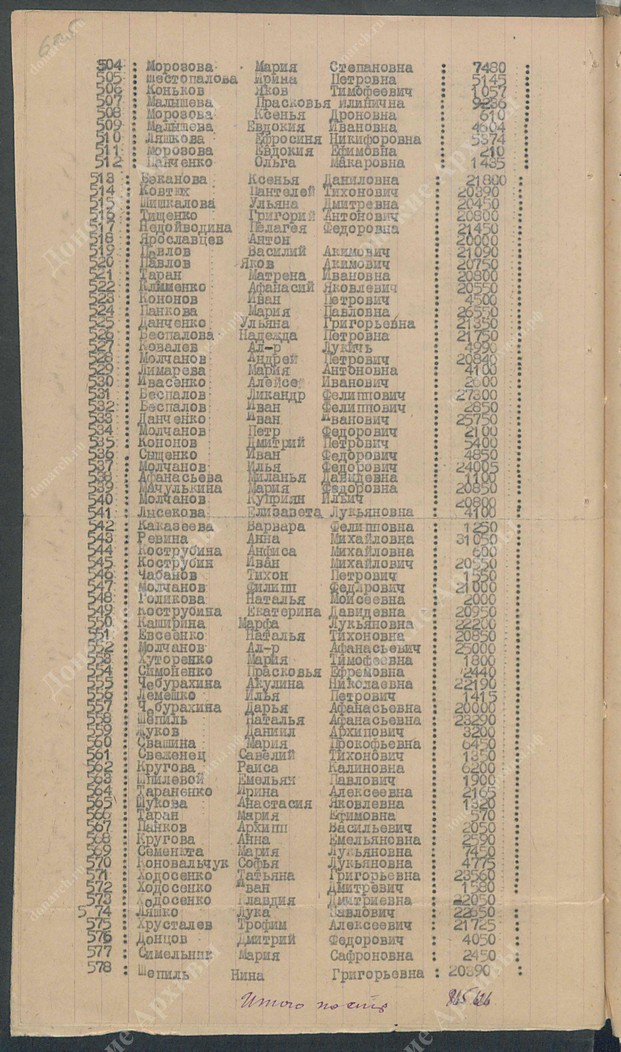 504 : Морозова Мария Степановна : 7480
505 : Шестопалова Ирина Петровна : 5145
506 : Коньков Яков Тимофеевич : 1057
507 : Малышева Прасковья Илинична : 9236
508 : Морозова Ксенья Дроновна : 610
509 : Малышева Евдокия Ивановна : 4604
510 : Ляшкова Ефросиня Никифоровна : 5374
511 : Морозова Евдокия Ефимовна : 210
512 : Панченко Ольга Макаровна : 1485
513 : Беканова Ксенья Даниловна : 21800
514 : Ковтюх Пантелей Тихонович : 20390
515 : Шишкалова Ульяна Дмитревна : 20450
516 : Тищенко Григорий Антонович : 20800
517 : Недойводина Пелагея Федоровна : 21450
518 : Ярославцев Антон : 20000
519 : Павлов Василий Акимович : 21090
520 : Павлов Яков Акимович : 20750
521 : Таран Матрена Ивановна : 20800
522 : Клименко Афанасий Яковлевич : 20550
523 : Кононов Иван Петрович : 4500
524 : Панкова Мария Павловна : 26550
525 : Данченко Ульяна Григорьевна : 21350
526 : Беспалова Надежда Петровна : 21750
527 : Ковалев Ал-р Лукичь : 490
528 : Молчанов Андрей Петрович : 20840
529 : Лимарева Мария Антоновна : 4100
530 : Ивасенко Алейсей Иванович : 2600
531 : Беспалов Ликандр Фелиппович : 27300
532 : Беспалов Иван Фелиппович : 2850
533 : Данченко Иван Иванович : 25750
534 : Молчанов Петр Федорович : 2100
535 : Кононов Дмитрий Петрович : 5400
536 : Сыщенко Иван Федорович : 4850
537 : Молчанов Илья Федорович : 24005
538 : Афанасьева Миланья Давидевна : 1100
539 : Мачулькина Мария Федоровна : 20850
540 : Молчанов Куприян Ильич : 20800
541 : Лысекова Елизавета Лукьяновна : 4100
542 : Каказеева Варвара Фелипповна : 1250
543 : Ревина Анна Михайловна : 31050
544 : Кострубина Анфиса Михайловна : 600
545 : Кострубин Иван Михайлович : 20550
546 : Чабанов Тихон Петрович : 1550
547 : Молчанов Филипп Федорович : 21000
548 : Голикова Наталья Моисеевна : 2000
549 : Кострубина Екатерина Давидевна : 20950
550 : Каширина Марфа Лукьяновна : 22200
551 : Евсеенко Наталья Тихоновна : 20850
552 : Молчанов Ал-р Афанасьевич : 25000
553 : Хуторенко Мария Тимофеевна : 1800
554 : Симоненко Прасковья Ефремовна : 2440
555 : Чебурахина Акулина Николаевна : 22190
556 : Лемешко Илья Петрович : 1415
557 : Чебурахина Дарья Афанасьевна : 20000
558 : Шепиль Наталья Афанасьевна : 23290
559 : Жуков Даниил Архипович : 3200
560 : Свашина Мария Прокофьевна : 6450
561 : Свеженец Савелий Тихонович : 1350
562 : Кругова Раиса Калиновна : 6200
563 : Шпилевой Емельян Павлович : 1900
564 : Тараненко Ирина Алексеевна : 2165
565 : Шукова Анастасия Яковлевна : 1320
566 : Таран Мария Ефимовна : 570
567 : Панков Архипп Васильевич : 2050
568 : Кругова Анна Емельяновна : 2590
569 : Семенюта Мария Лукьяновна : 7450
570 : Коновальчук Софья Лукьяновна : 4775
571 : Ходосенко Татьяна Григорьевна : 23560
572 : Ходосенко Иван Дмитревич : 1580
573 : Ходосенко Клавдия Дмитриевна : 22050
5 74 : Ляшко Лука Павлович : 22650
575 : Хрусталев Трофим Алексеевич : 21725
576 : Донцов Дмитрий Федорович : 4050
577 : Симельник Мария Сафроновна : 2450
578 : Шепиль Нина Григорьевна : 20390
Итого по